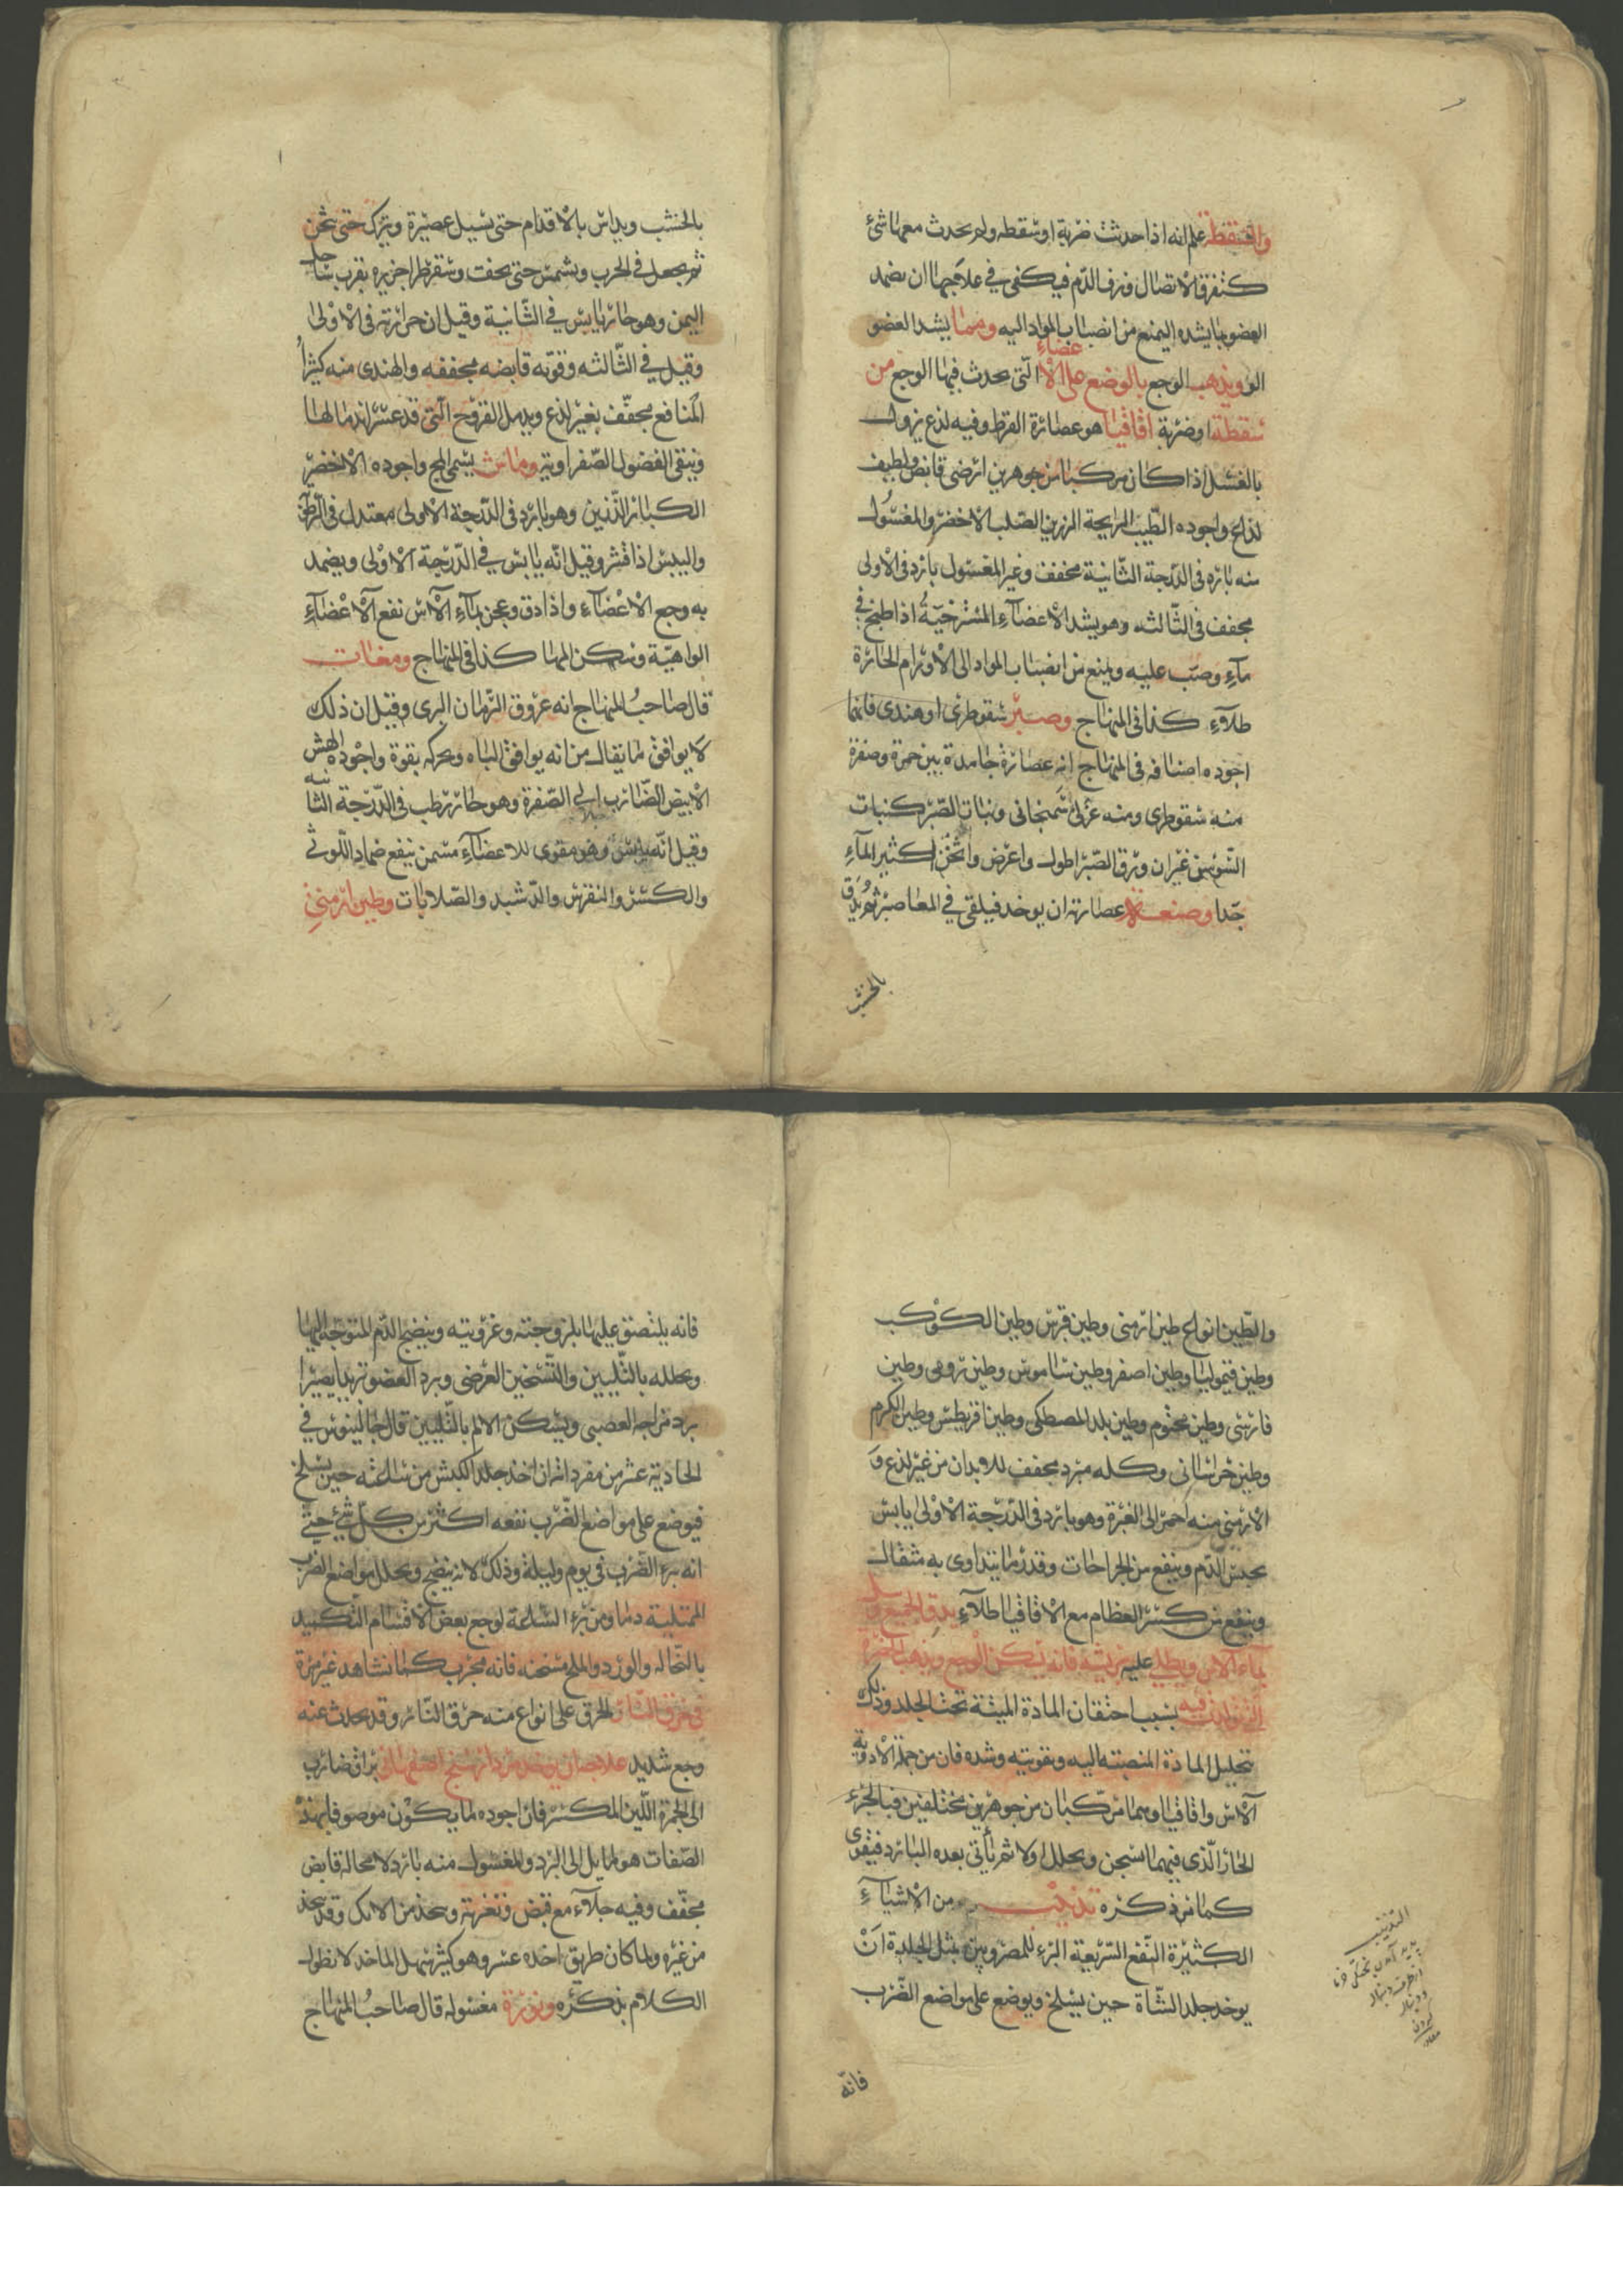 والسقطة علم انه اذا حدثت ضربة او سقطه ولم يحدث معها شئ
كتفرق الاتصال ونزف الدم فيكفى في علاجها ان يضمد
العضو بما يشده ليمنع من انصباب المواد اليه ومما يشد العضو
الو ويذهب الوجع بالوضع على الاعضاء الّتى يحدث فيها الوجع من
سقطة او ضربة اقاقيا هو عصارة القرظ وفيه لذع يزول
بالغسل اذا كان مركبا من جوهرين ارضى قابض ولطيف
لذاع واجوده الطّيب الرايحة الرزين الصلب الاخضر والمغسول
منه بارد فى الدّرجة الثّانية مخفف وغير المغسول بارد فى الاولى
مجفف فى الثّالثه وهو يشد الاعضاء المسترخيةُ اذا طبخ في
ماءِ وصبّ عليه ويمنع من انصباب المواد الى الاورام الحارة
طلاءِ كذا فى المنهاج وصبر سقوطرى او هندى فانها
اجود اصنافه فى المنهاج انه عصارة جامدة بين حمرة وصفرة
منه سقوطرى ومنه عربى سمنجانى ونبات الصّبر كنبات
السّوسن غير ان ورق الصّبر اطول واعرض واثخن كثير الماءِ
جّدا وصنعة عصارته ان يوخد فيلقى في المعاصر ثم يدق
بالخشب
بالخشب ويداس بالاقدام حتى يسيل عصيرة ويترك حتى يثخن
ثم يجعل في الجرب ويشمس حتى يجفت وسقرطرا جزيره بقرب ساحل
اليمن وهو حار يابس في الثّانية وقيل ان حرارته فى الاولى
وقيل في الثّالثه وقوّته قابضه مجففه والهندى منه كثيراُ
المنافع مجفّف بغير لذع ويدمل القروح الّتى قد عسر اندمالها
وينقى الفضول الصّفراويه وماش يسمى المج واجوده الاخضر
الكبار الرّزين وهو بارد فى الدّرجة الاولى معتدل فى الرّطوبة
واليبس اذا قشر وقيل انّه يابس في الدّرجة الاولى ويضمد
به وجع الاعضاء واذا دق وعجن بماءِ الآس نفع الاعضاءِ
الواهيّة وسكن المها كذا فى المنهاج ومغاث
قال صاحبُ المنهاج انه عروق الرّمان البرى وقيل ان ذلك
لا يوافق ما يقال من انه يوافق الباه ويحركه بقوة واجوده الهش
الابيض الضارب الى الصّفرة وهو حار رطب فى الدّرجة الثانيه
وقيل انّه يابس وهو مقوى للاعضاءِ مسمن ينفع ضماد اللّوثي
والكسر والنقرس والدّشبد والصّلابات وطين ارمنيِ
والطّين انواع طين ارمنى وطين قبرس وطين الكوكب
وطين قيموليا وطين اصفر وطين ساموس وطين رومى وطين
فارسى وطين مختوم وطين بلد المصطكى وطين اقريطس وطين الكرم
وطين خراسانى وكله مبرد مجفف للابدان من غير لذع وَ
الارمنى منه احمر الى الغبرة وهو بارد فى الدّرجة الاولى يابس
يحبس الدّم وينفع من الجراحات وقدر ما يتداوى به مثقال
وينفع من كسر العظام مع الاقاقيا طلاءِ يدق الجميع
بماء الاس ويطلى عليه بريشه فانه يسكن الوجع ويذهب الخضرة
المتولدة فيه بسبب احتقان المادة الميتة تحت الجلد وذلك
بتحليل المادة المنصبته اليه وبقويته وشده فان من جملة الادوية
آلاس واقاقيا وهما مركبان من جوهرين مختلفين فبالجزء
الحار الّذى فيهما يسخن ويحلل اولا ثم يأتى بعده البارد فيقوى
كما مر ذكره تذنيب من الاشياءِ
الكثيرة النّفع السّريعة البرء للمضروبين بمثل الجلدة انْ
يوخد جلد الشّاة حين يسلخ ويوضع على مواضع الضّرب
فانّه
التذنيب
فانه يلتصق عليها بلزوجته وغرويته وينضج الدّم المتوجّه اليها
ويحلله بالتّليين والتّسخين العرضى وبرد العضو تبريدا يصيرا
برد مزاجه العصبى ويسكن الالم بالتّليين قال جالينوس في
الحادية عشر من مفرداته ان اخذ جلد الكبش من ساعته حين يسلخ
فيوضع على مواضع الضّرب نفعه اكثر من كل شيءِ حتّى
انه برء الضّرب فى يوم وليلة وذلك لانه ينضج ويحلل مواضع الضرب
الممتلية دما ومن برء السّاعة لوجع بعض الاقسام التّكميد
بالنّخاله والورد والملح مسخنه فانه مجرب كما نشاهد غير مرة
فى حرق النّار الحرق على انواع منه حرق النّار وقد يحدث عنه
وجع شديد علاجه ان يوخد مرداسنج اصفهانى براق ضارب
الى الحمرة اللّين المكسر فان اجوده لما يكون موصوفا بهذْ
الصّفات هو لمايل الى البرد والمغسول منه بارد لا محالة قابض
مجفّف وفيه جلآء مع قبض وتغرية ويتخذ من الانك وقد يتخذ
من غيره ولما كان طريق اخده عسر وهو كثير سهل الماخد لا نطول
الكلام بذكره ونورة مغسوله قال صاحبُ المنهاج